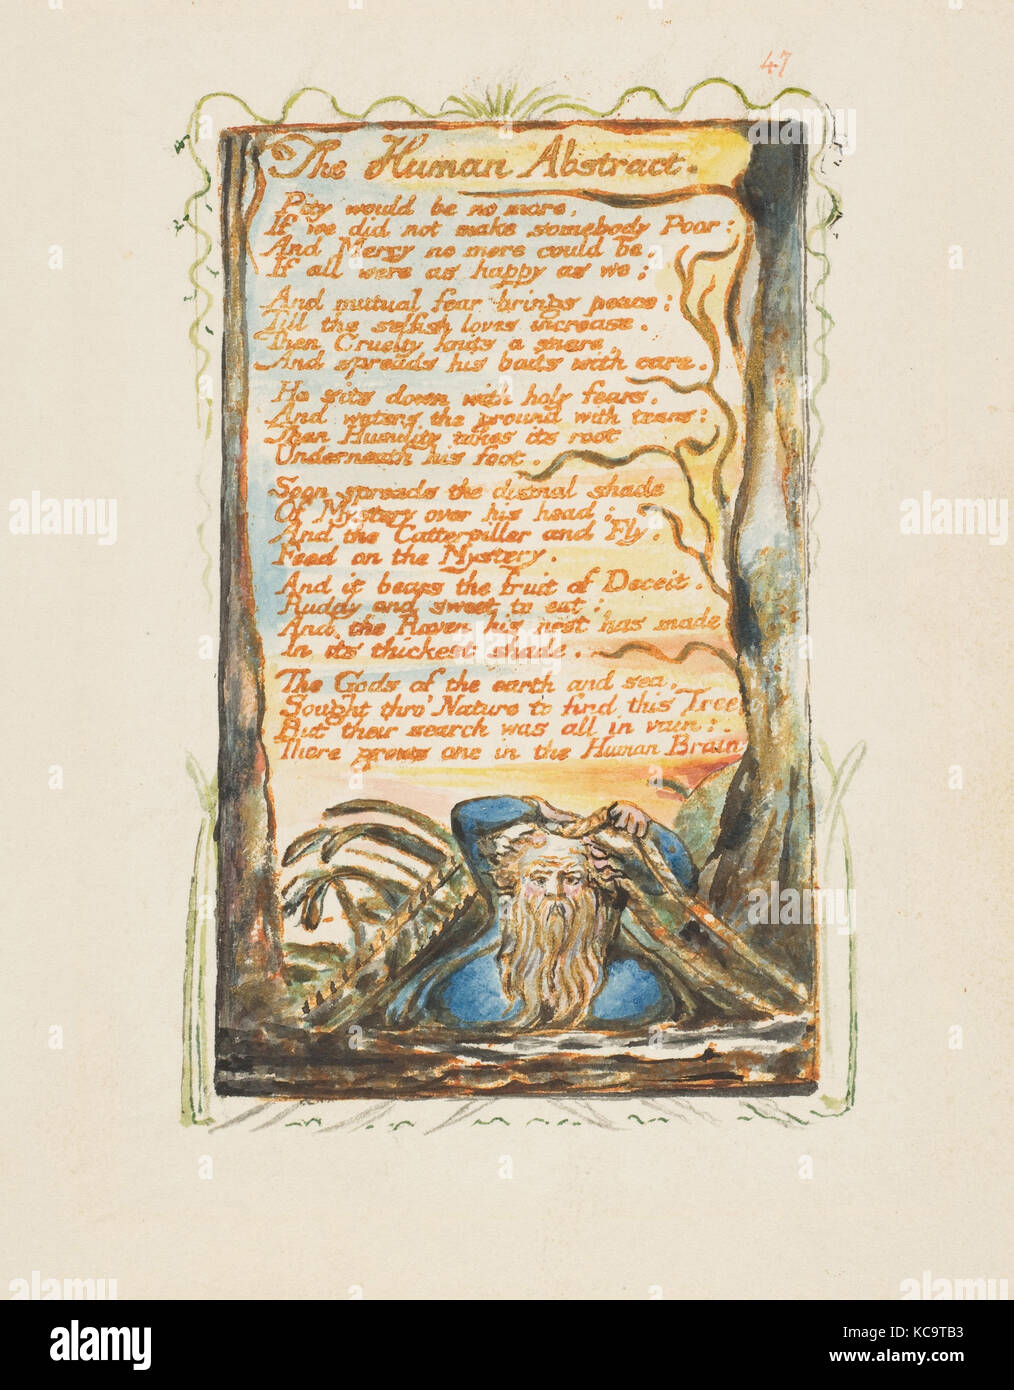 47
The Human Abstract.
Pity would be no more,
If we did not make somebody Poor:
And Mercy no more could be,
If all were as happy as we;
And mutual fear brings peace:
Till the selfish loves increase.
Then Cruelty knits a snare,
And spreads his baits with care.
He sits down with holy fears,
And waters the ground with tears:
Then Humility takes its root
Underneath his foot.
Soon spreads the dismal shade
Of Mystery over his head:
And the Catterpiller and Fly,
Feed on the Mystery.
And it bears the fruit of Deceit,
Ruddy and sweet to eat:
And the Raven his nest has made
In its thickest shade.
The Gods of the earth and sea,
Sought thro' Nature to find this Tree
But their search was all in vain:
There grows one in the Human Brain
alamy
alamy
alamy
a
a
a
alamy
Image ID: KC9TB3
www.alamy.com